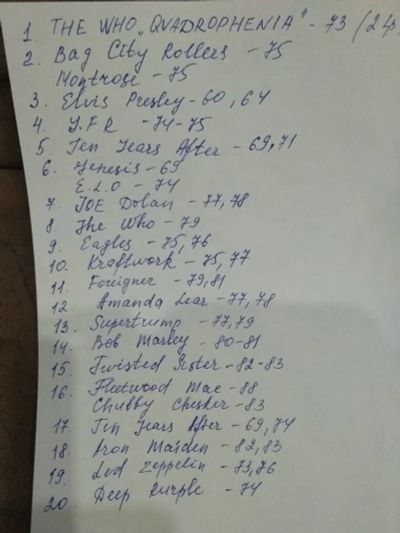 1. THE WHO „QVADROPHENIA" - 73 (2
2. Bag City Rollers - 75
Montrose - 75
3. Elvis Presley - 60, 64
4. G.F.R - 74-75
5. Ten Years After - 69, 71
6. Genesis - 69
E.L.O - 74
7. JOE Dolan - 77, 78
8. The Who - 79
9. Eagles - 75, 76
10. Kraftwork - 75, 77
11. Foreigner - 79, 81
12. Amanda Lear - 77, 78
13. Supertrump - 77, 79
14. Bob Marley - 80-81
15. Twisted Sister - 82-83
16. Fleetwood Mac - 88
Chubby Chesker - 83
17. Ten Years After - 69, 74
18. Iron Maiden - 82, 83
19. Led Zeppelin - 73, 76
20. Deep Purple - 74